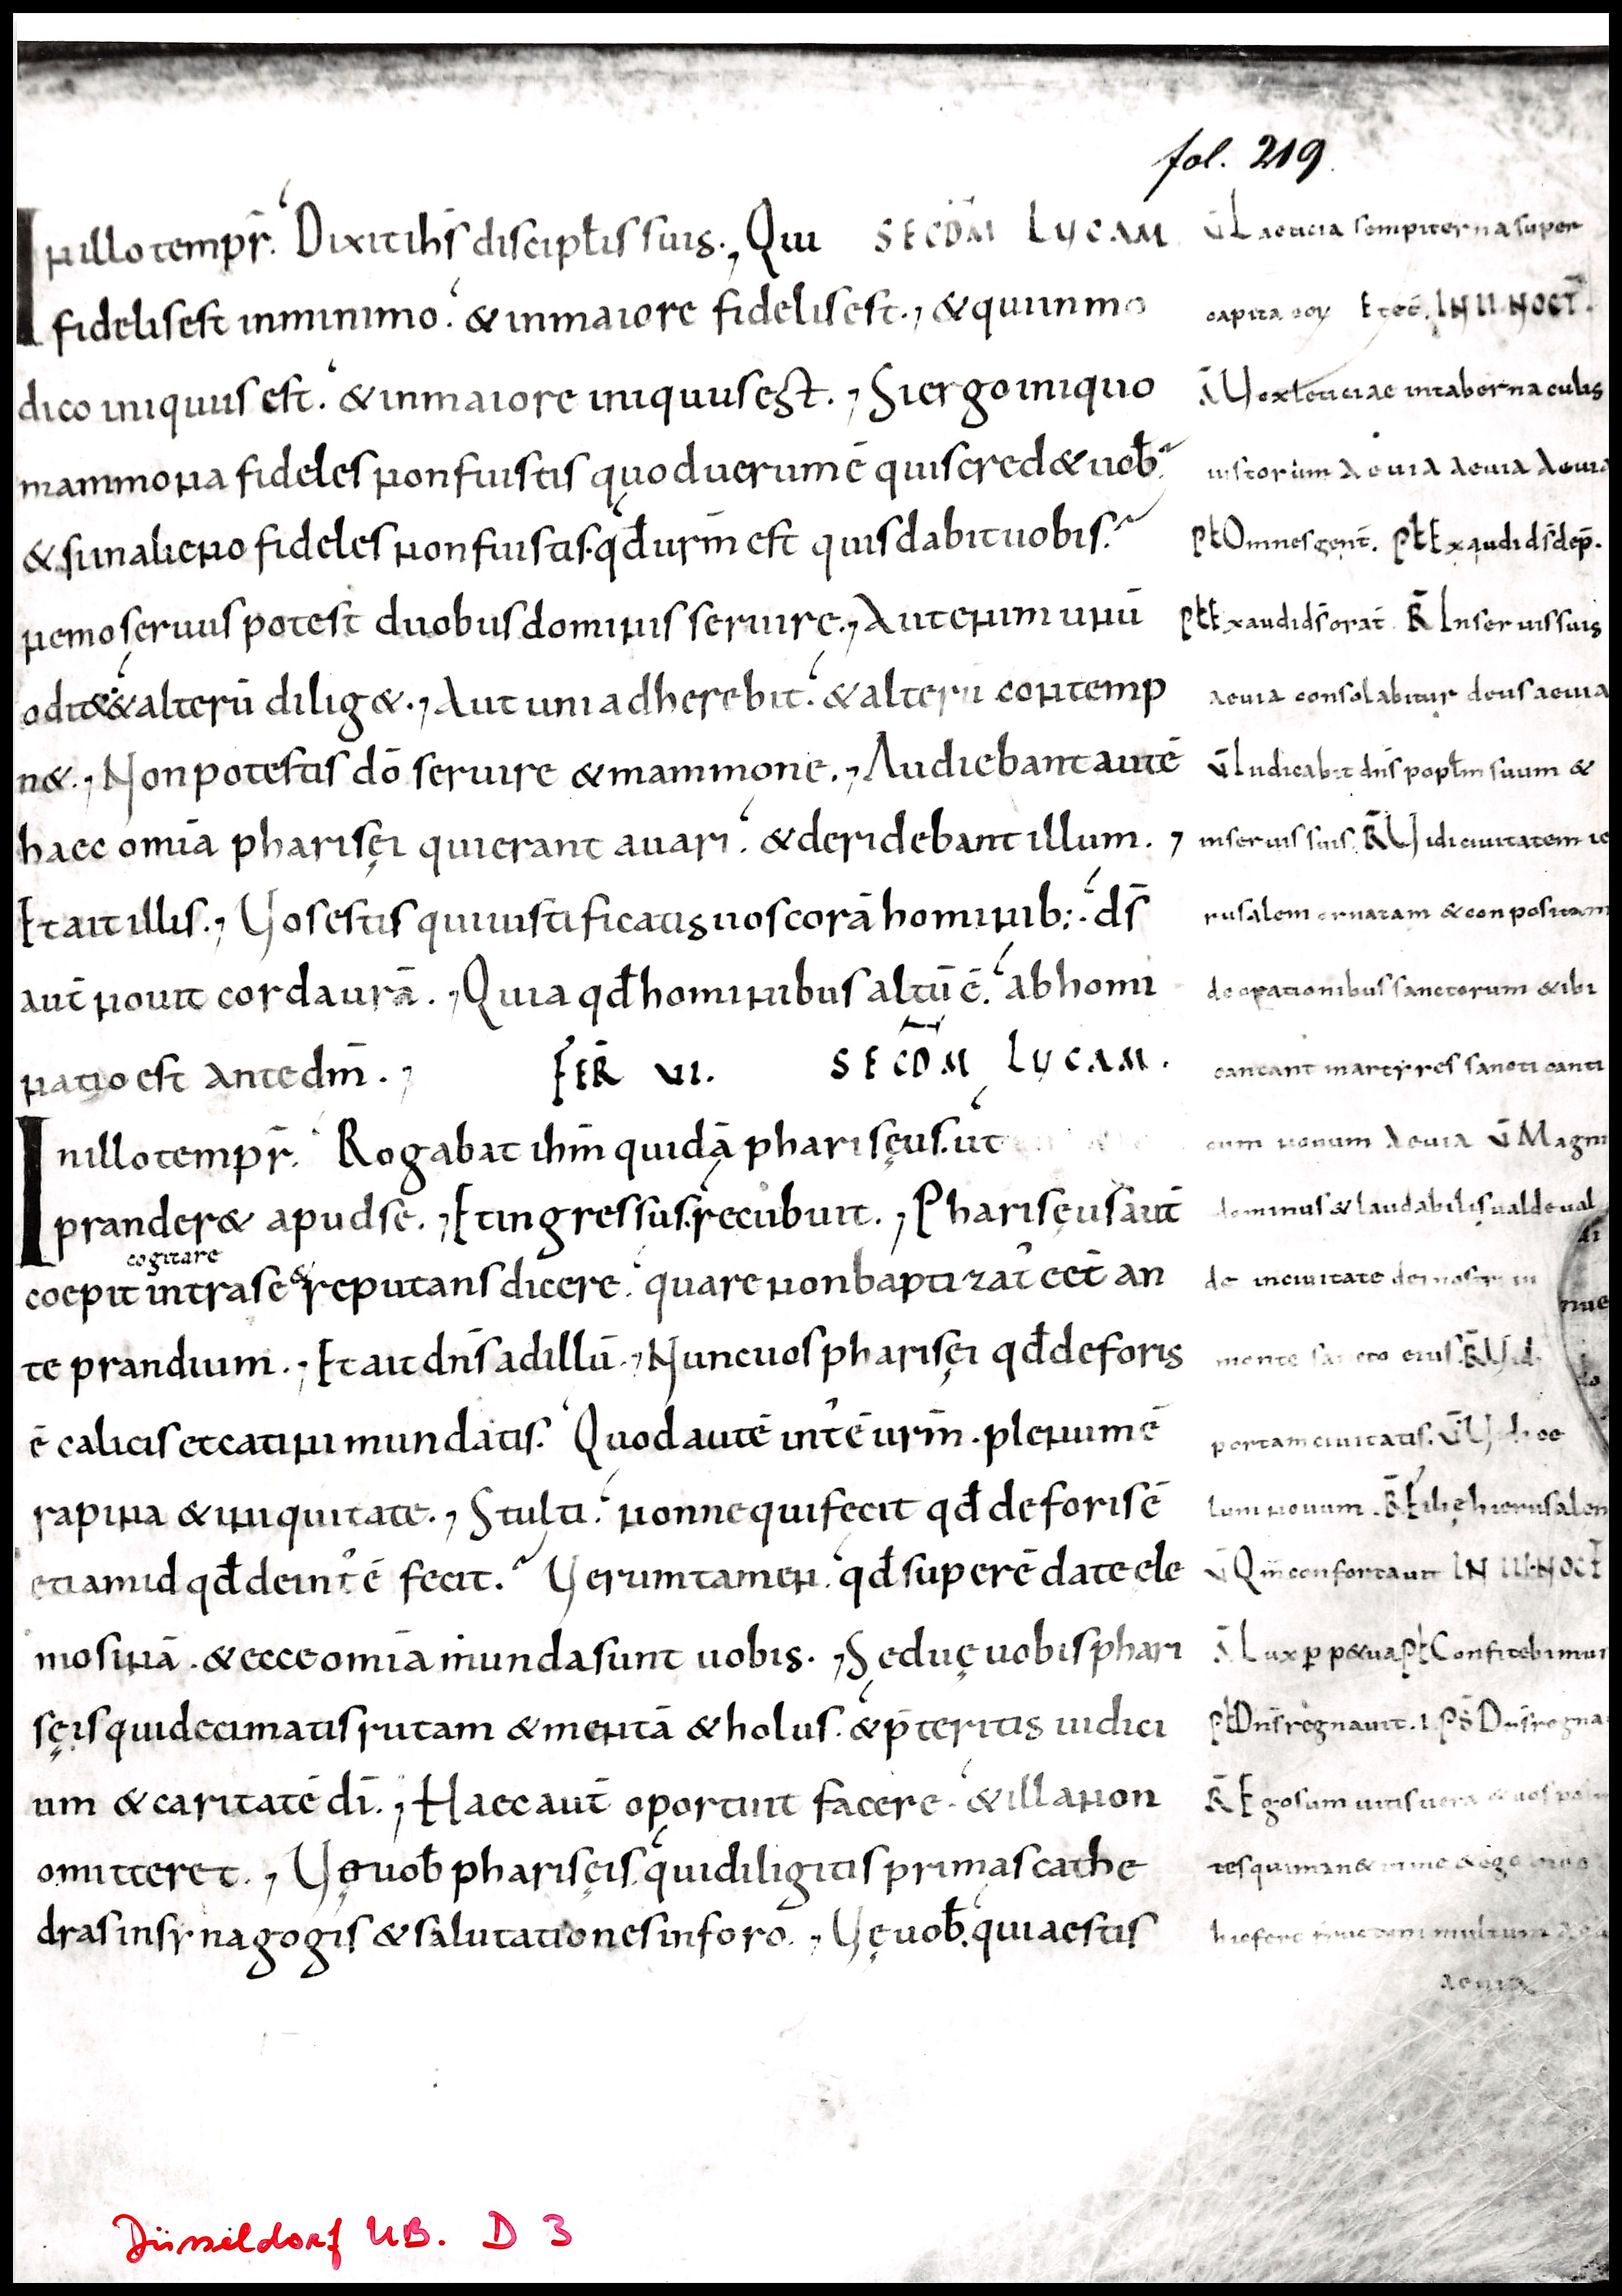 fol. 219.
In illo tempr̄. Dixit ihs̄ discipłis suis., Qui SECD̄M LUCAM
fidelis est in minimo. & in maiore fidelis est., & qui in mo
dico iniquus est. & in maiore iniquus est., Si ergo iniquo
mammona fideles non fuistis quod uerum ē quis cred& uob̄.
& si in alieno fideles non fuistis. qđ ur̄m est quis dabit uobis.
nemo seruus potest duobus dominis seruire., Aut enim unū
odit & alterū dilig&., Aut uni adherebit. & alterū contemp
n&., Non potestis dō seruire & mammone., Audiebant autē
haec omīa pharisęi qui erant auari. & deridebant illum.,
Et ait illis., Uos estis qui iustificatis uos corā hominib:. ds̄
aut̄ nouit corda urā., Quia qđ hominibus altū ē. abhomi
natio est ante dm̄., FER̄ VI. SECD̄M LUCAM.
In illo tempr̄. Rogabat ihm̄ quidā pharisęus. ut
prander& apud se., Et ingressus. recubuit., Pharisęus aut̄
cogitare
coepit intra se & reputans dicere. quare non baptizat̄ eēt an
te prandium., Et ait dn̄s ad illū., Nunc uos pharisęi qđ deforis
ē calicis et catini mundatis. Quod autē int̄ ē ur̄m. plenum ē
rapina & iniquitate., Stulti. nonne qui fecit qđ deforis ē
etiam id qđ deint̄ ē fecit. Uerumtamen. qđ super ē date ele
mosinā. & ecce omīa munda sunt uobis., Sed uę uobis phari
sęis qui decimatis rutam & mentā & holus. & p̄teritis iudici
um & caritatē dī., Haec aut̄ oportuit facere. & illa non
omitteret., Uę uob̄ pharisęis. qui diligitis primas cathe
dras in synagogis & salutationes in foro., Uę uob̄. qui aestis
V̄ Laeticia sempiterna super
capita eoꝝ IN II. NOCT̄.
Ā Uox leticiae in tabernaculis
iustorum aeuia aeuia aeuia
Pł Omnes gent̄. Pł Exaudi ds̄ dep̄.
Pł Exaudi ds̄ orat̄ R̄ In seruis suis
aeuia consolabitur deus aeuia
V̄ Iudicabit dn̄s popłm suum &
in seruis suis. R̄ Uidi ciuitatem ie
rusalem ornatam & conpositam
de orationibus sanctorum & ibi
cantant martyres sancti canti
cum nouum Aeuia V̄ Magn
dominus & laudabilis ualde ual
de in ciuitate dei nostri in
monte sancto eius. R̄ Uidi
portam ciuitatis. V̄ Uidi ce
lum nouum. R̄ Filię hierusalem
V̄ Qm̄ confortauit IN III. NOCT̄
Ā Lux ꝑp&ua Pł Confitebimur
Pł Dn̄s regnauit. I. Ps̄ Dn̄s regna
R̄ Ego sum uitis uera & uos palmi
tes qui man& in me & ego in eo
hic fert fructum multum
aeuia
Düsseldorf UB. D 3